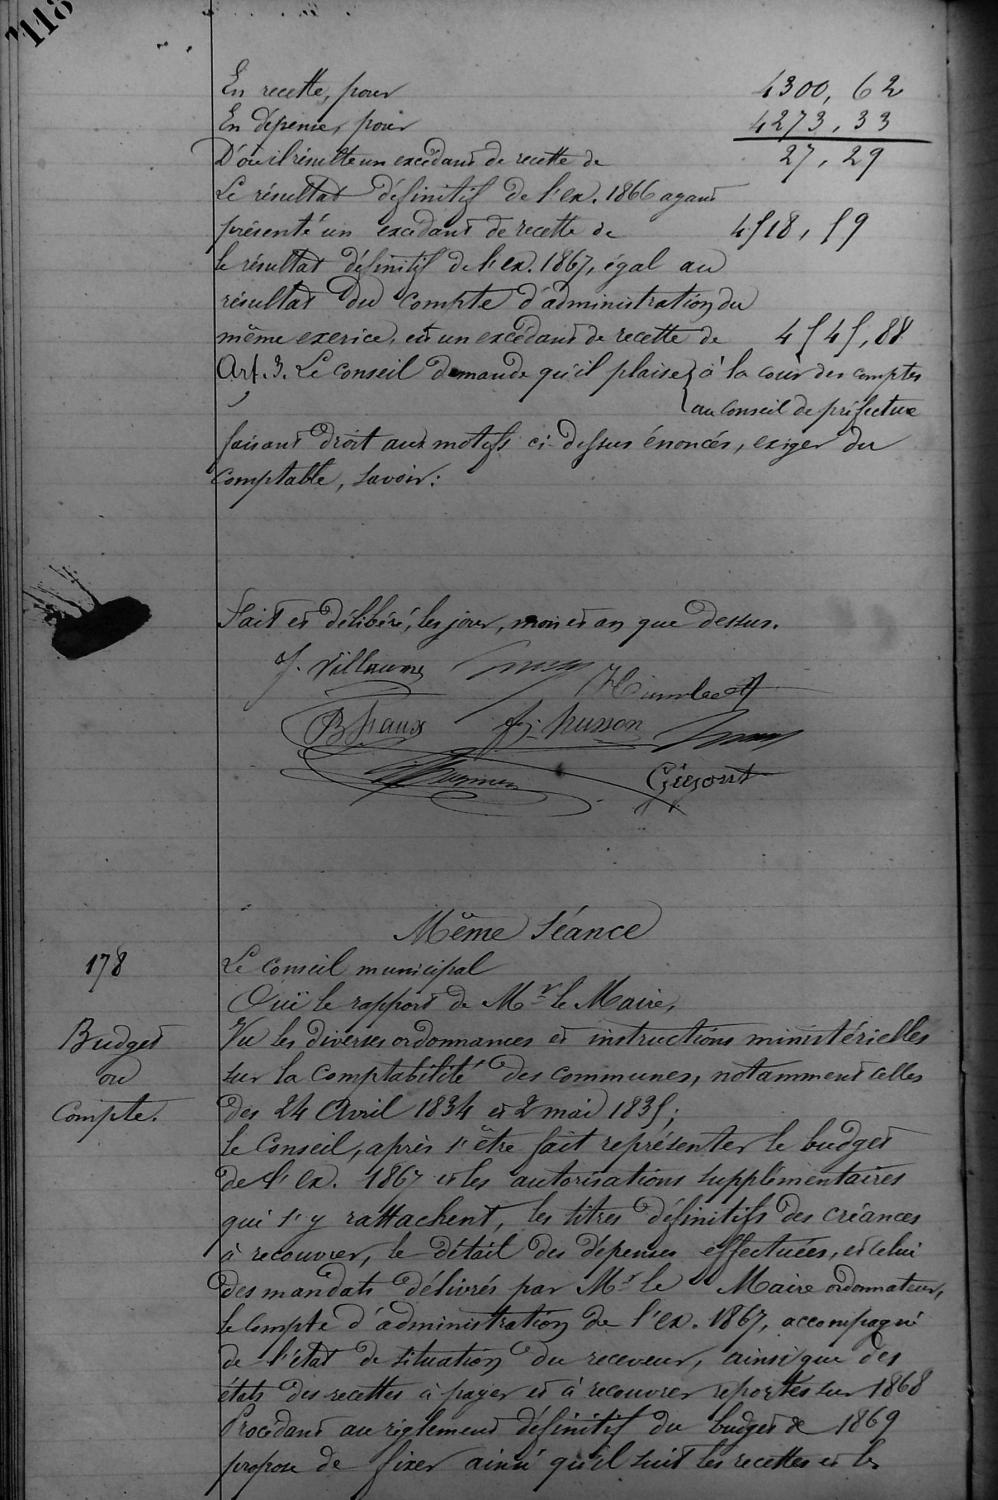 118
En recette, pour 4300, 62
En dépense, pour 4273, 33
D'où il résulte un excédant de recette de 27, 29
Le résultat définitif de l'ex. 1866 ayant
présenté un excédant de recette de 4518, 59
le résultat définitif de l'ex. 1867, égal au
résultat du compte d'administration du
même exercice, est un excédant de recette de 4545, 88
Art. 3. Le Conseil demande qu'il plaise à la cour des comptes
au Conseil de préfecture
faisant droit aux motifs ci-dessus énoncés, exiger du
comptable, savoir:
Fait et délibéré, les jour, mois et an que dessus.
J. Villaume
Humbert
B haux J. husson
Gégout
Même Séance
178
Le Conseil municipal
Ouï le rapport de Mr le Maire,
Budget
ou
Compte.
Vu les diverses ordonnances et instructions ministérielles
sur la comptabilité des communes, notamment celles
des 24 Avril 1834 et 2 mai 1835;
le Conseil, après s'être fait représenter le budget
de l'ex. 1867 et les autorisations supplémentaires
qui s'y rattachent, les titres définitifs des créances
à recouvrer, le détail des dépenses effectuées, et celui
des mandats délivrés par Mr le Maire ordonnateur,
le Compte d'administration de l'ex. 1867, accompagné
de l'état de situation du receveur, ainsi que des
états des recettes à payer et à recouvrer reportés sur 1868
Procédant au règlement définitif du budget de 1869
propose de fixer ainsi qu'il suit les recettes et les